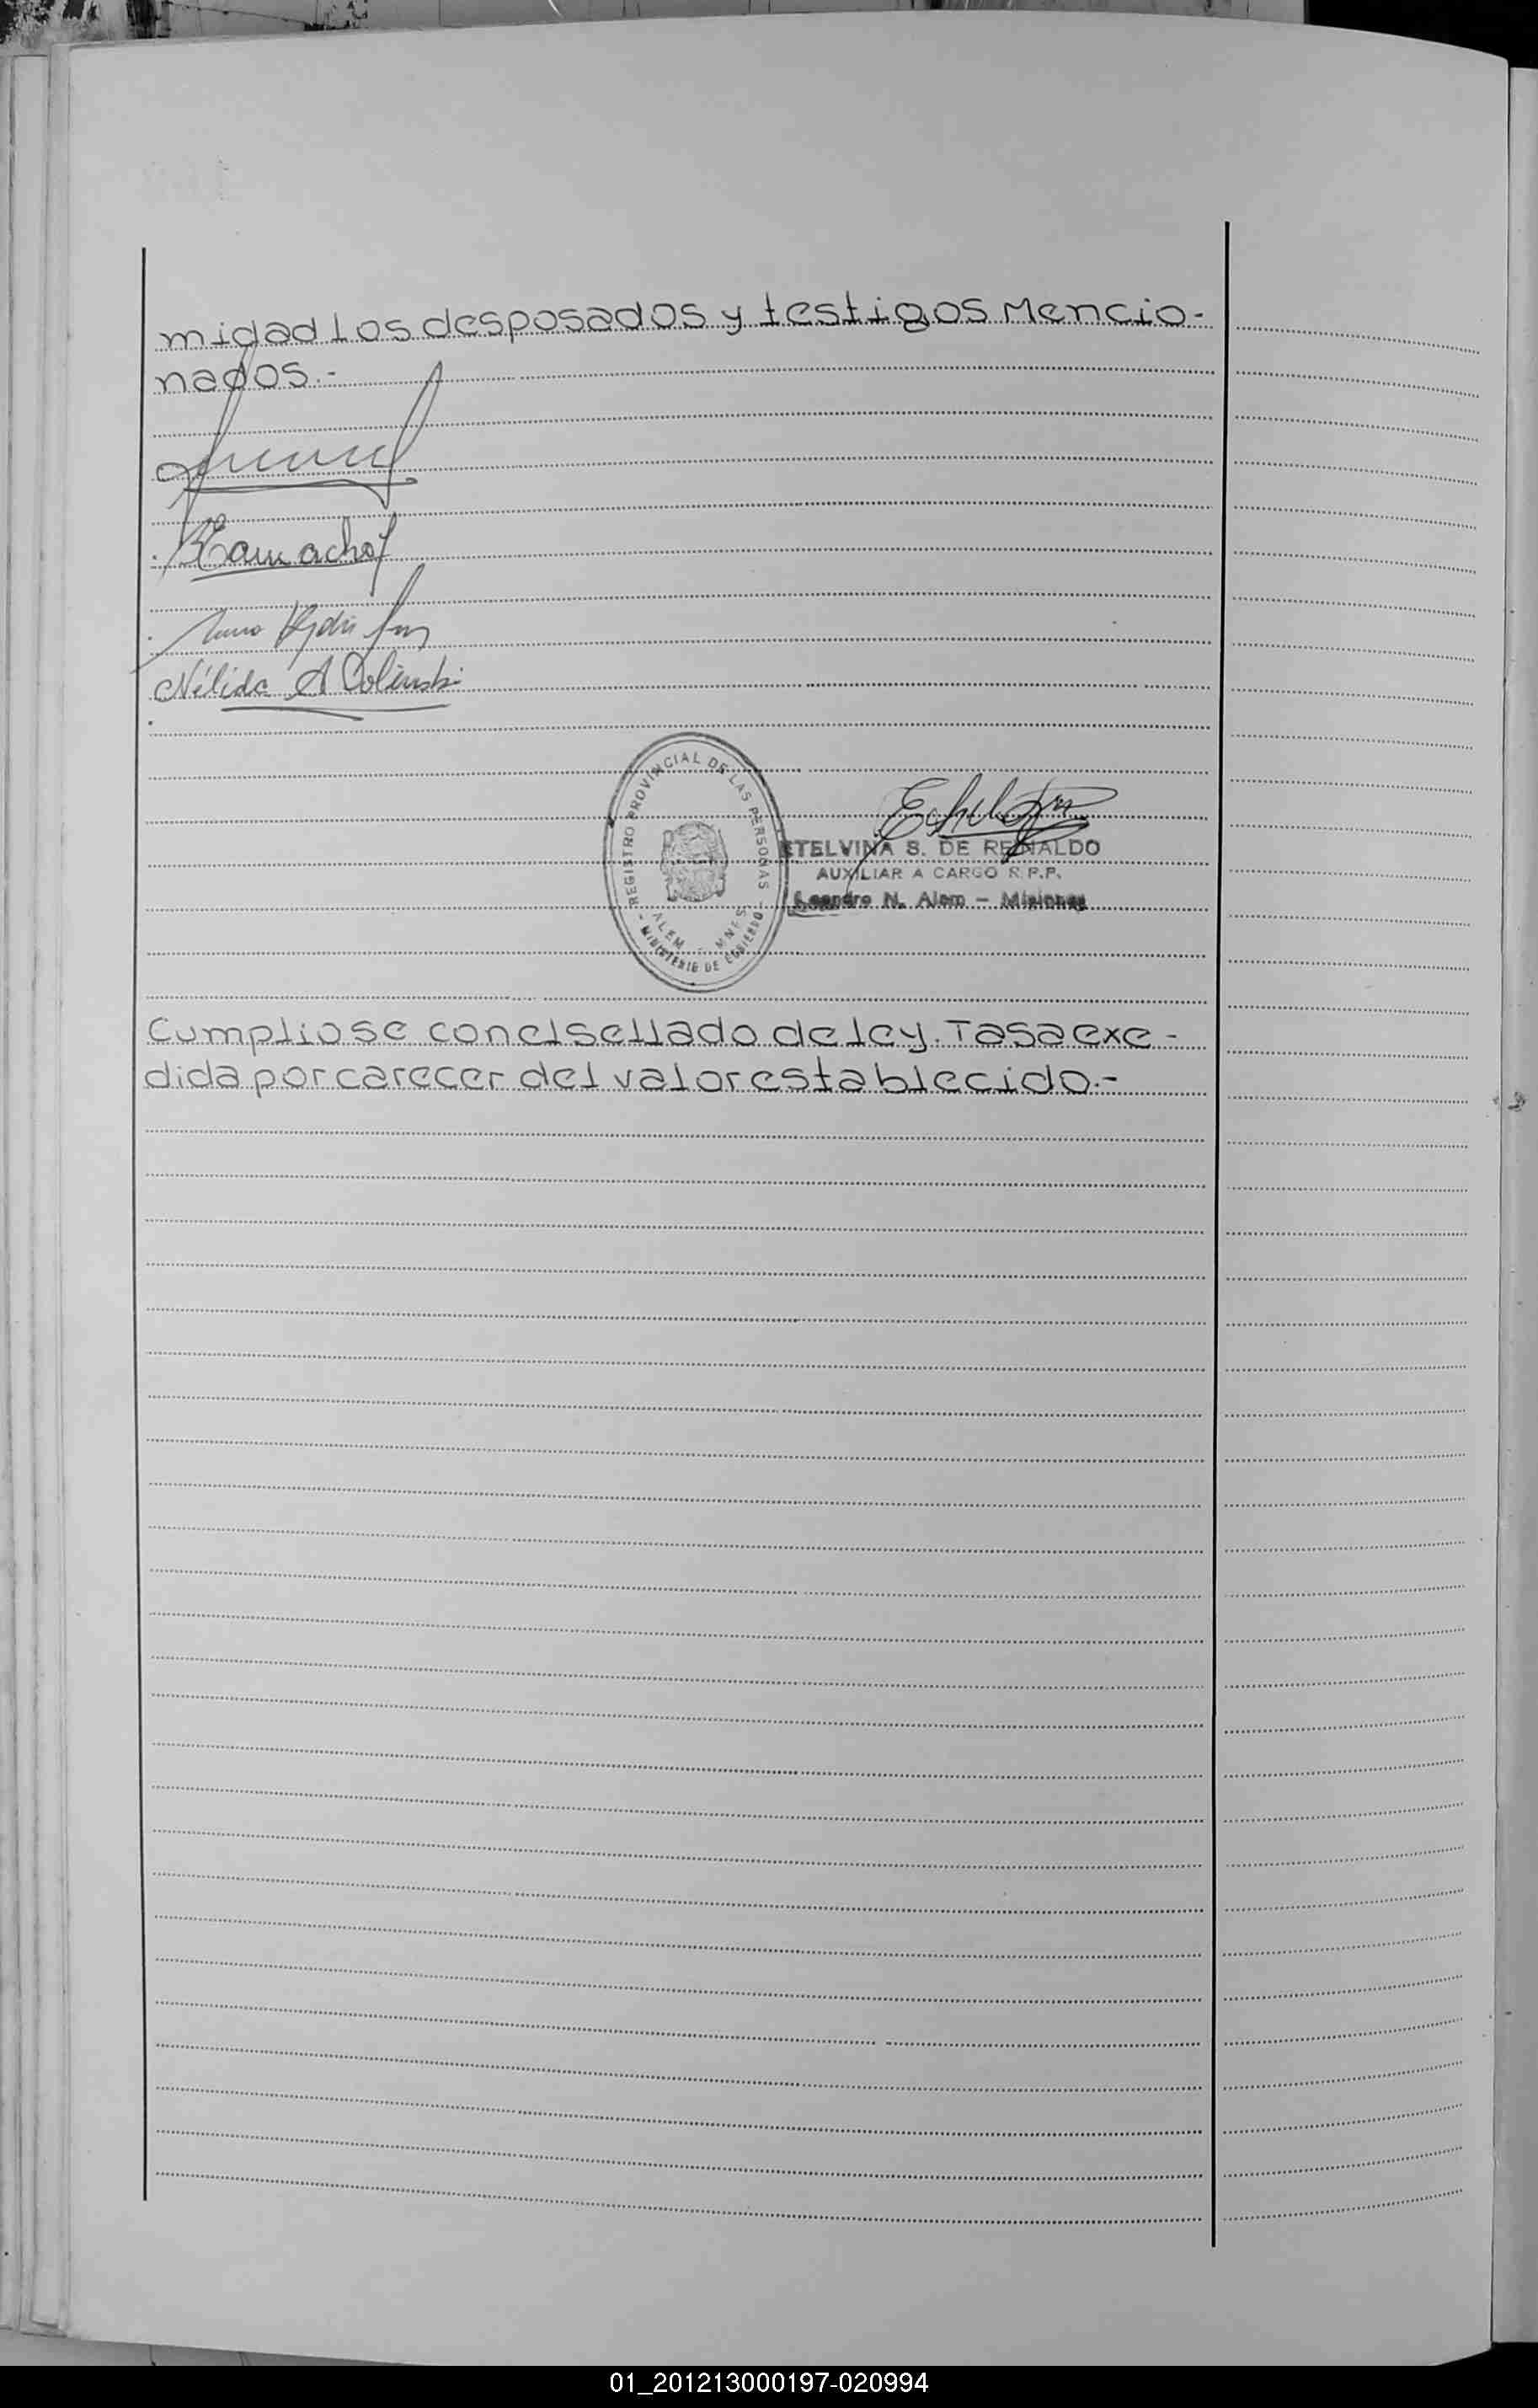 midad los desposados y testigos Mencio-
nados.-
Camacho
Nélida A Colinski
REGISTRO PROVINCIAL DE LAS PERSONAS
ALEM - MNES
- MINISTERIO DE GOBIERNO -
ETELVINA S. DE REINALDO
AUXILIAR A CARGO R.P.P.
Leandro N. Alem - Misiones
Cumpliose con el sellado de ley. Tasa exe-
dida por carecer del valor establecido.-
01_201213000197-020994